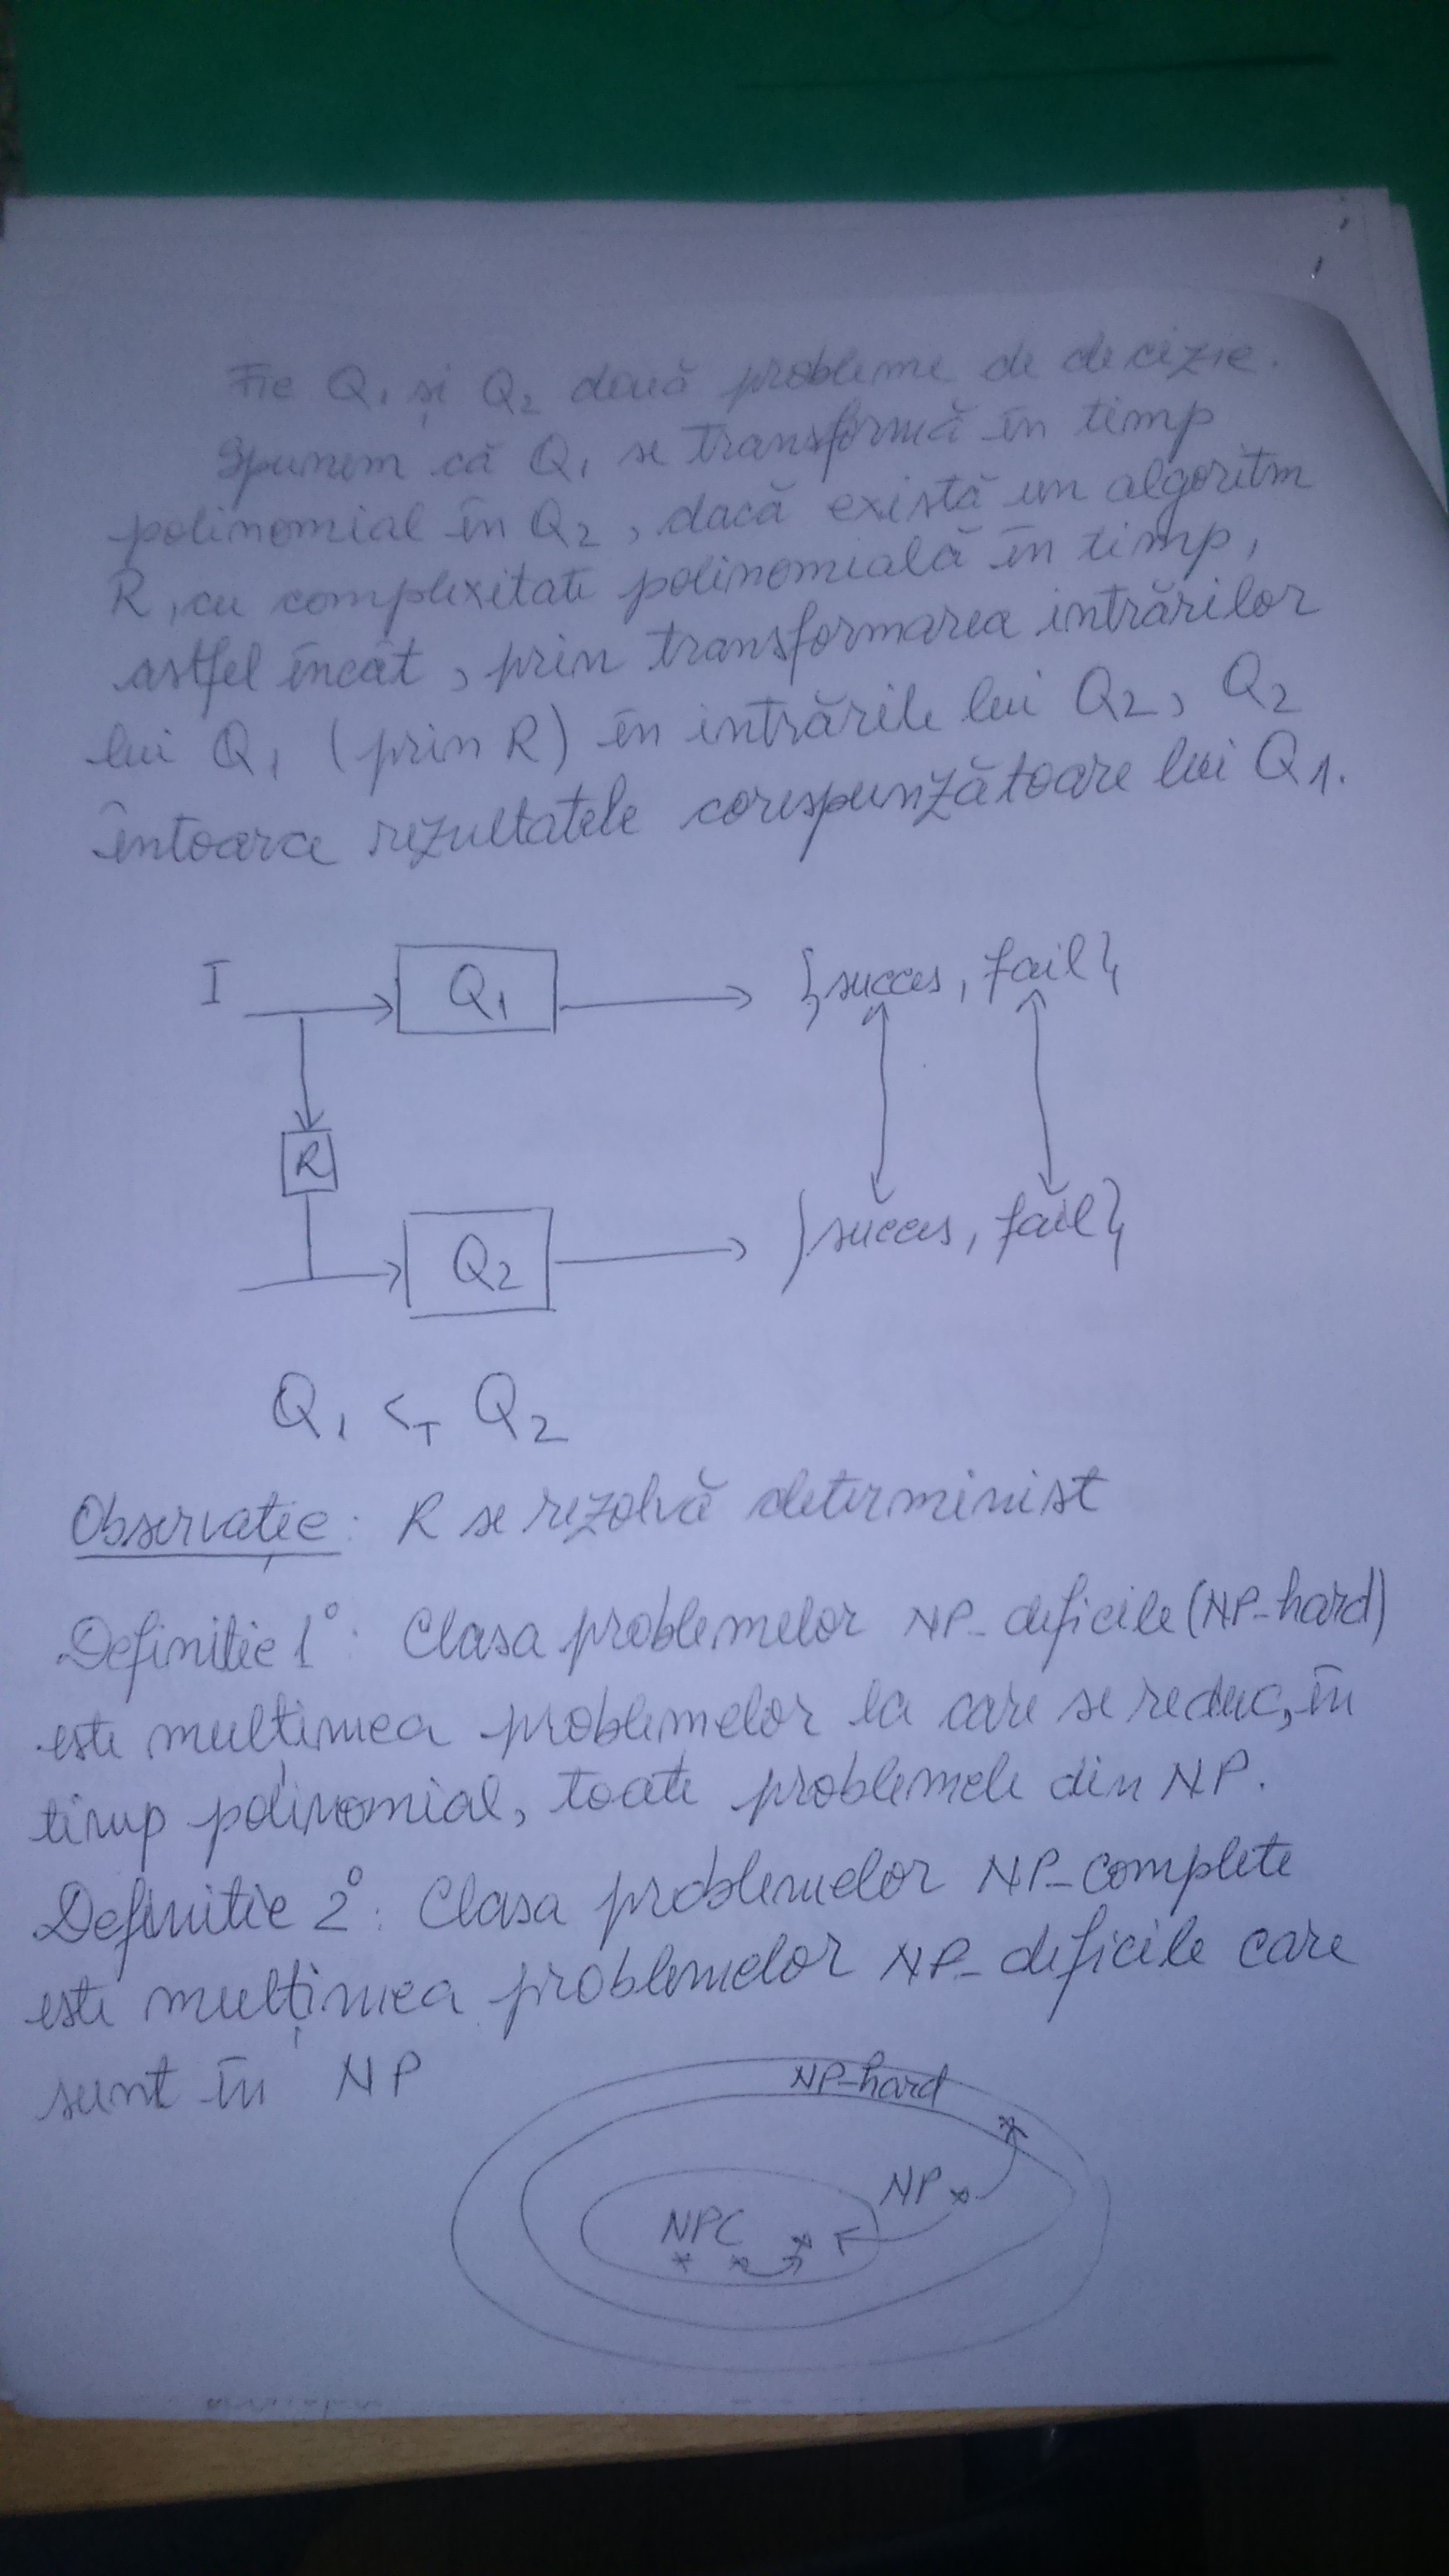 Fie Q1 și Q2 două probleme de decizie.
Spunem că Q1 se transformă în timp
polinomial în Q2, dacă există un algoritm
R, cu complexitate polinomială în timp,
astfel încât, prin transformarea intrărilor
lui Q1 (prin R) în intrările lui Q2, Q2
întoarce rezultatele corespunzătoare lui Q1.
I
Q1
{succes, fail}
R
Q2
{succes, fail}
Q1 <T Q2
Observație: R se rezolvă determinist
Definitie 1°: Clasa problemelor NP-deficile (NP-hard)
este mulțimea problemelor la care se reduc, în
timp polinomial, toate problemele din NP.
Definitie 2°: Clasa problemelor NP-complete
este mulțimea problemelor NP-deficile care
sunt în NP
NP-hard
NP
NPC